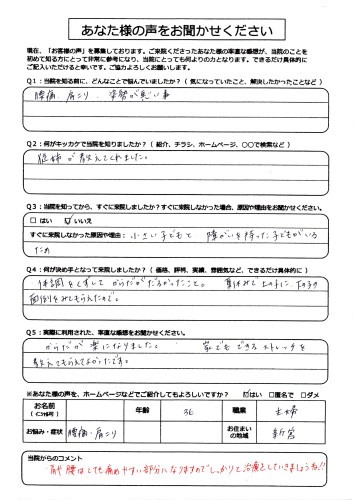 あなた様の声をお聞かせください
現在、「お客様の声」を募集しております。ご来院くださったあなた様の率直な感想が、当院のことを
初めて知る方にとって非常に参考になり、当院にとっても何よりの力となります。できるだけ具体的に
ご記入いただけると幸いです。ご協力よろしくお願いします。
Q1：当院を知る前に、どんなことで悩んでいましたか？（気になっていたこと、解決したかったことなど）
腰痛・肩こり・姿勢が悪い事
Q2：何がキッカケで当院を知りましたか？（紹介、チラシ、ホームページ、○○で検索など）
従姉が教えてくれました。
Q3：当院を知ってから、すぐに来院しましたか？すぐに来院しなかった場合、原因や理由をお聞かせください。
□はい ☑いいえ
すぐに来院しなかった原因や理由：小さい子どもと 障がいを持った子どもがいる
ため
Q4：何が決め手となって来院しましたか？（価格、評判、実績、雰囲気など、できるだけ具体的に）
体調をくずして からだがだるかったこと。 夏休みで上の子に 下の子の
面倒をみてもらえたので。
Q5：実際に利用された、率直な感想をお聞かせください。
からだが楽になりました。 家でもできるストレッチを
教えてもらえてよかったです。
※あなた様の声を、ホームページなどでご紹介してもよろしいですか？ ☑はい □匿名で □ダメ
お名前
年齢 36 職業 主婦
お悩み・症状 腰痛・肩こり お住まい
の地域 新宮
当院からのコメント
肩や腰はとても痛めやすい部分になりますのでしっかりと治療をしていきましょうね!!